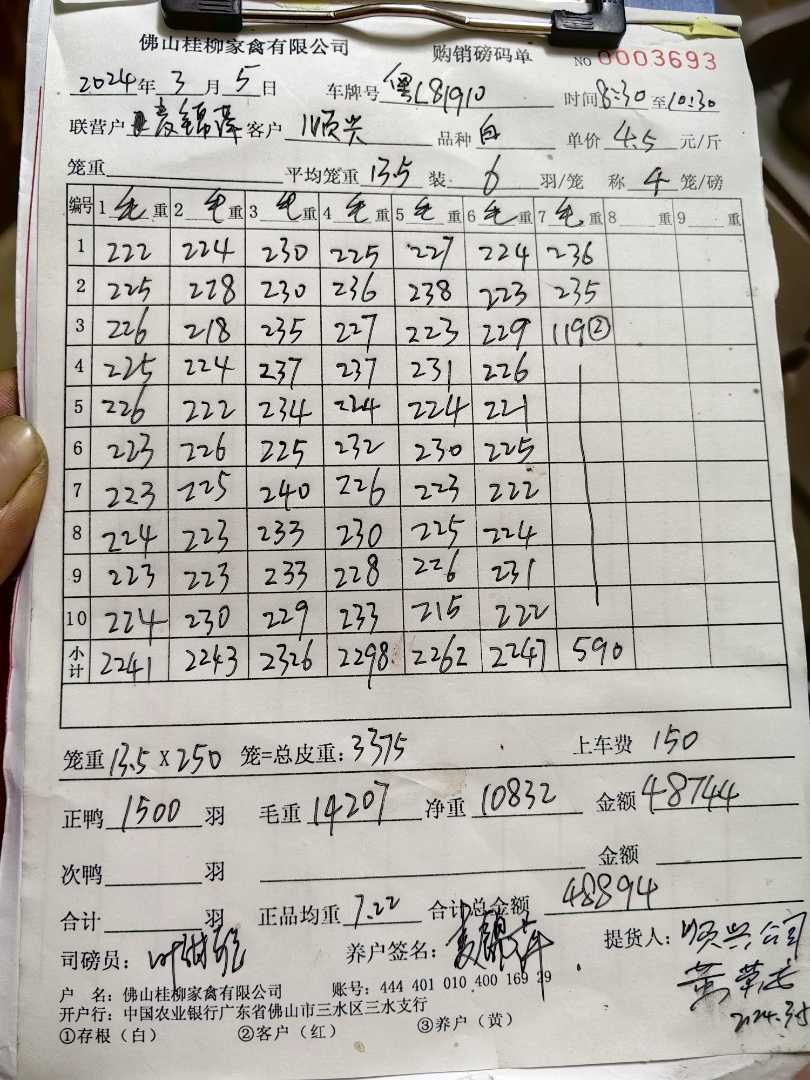 佛山桂柳家禽有限公司 购销磅码单 NO 0003693
2024年 3月 5日 车牌号 粤L81910 时间 8:30 至 10:30
联营户 麦锦萍 客户 顺兴 品种 白 单价 4.5 元/斤
笼重 平均笼重 13.5 装 6 羽/笼 称 4 笼/磅
编号 1 毛 重 2 毛 重 3 毛 重 4 毛 重 5 毛 重 6 毛 重 7 毛 重 8 重 9 重
1 222 224 230 225 227 224 236
2 225 228 230 236 238 223 235
3 226 218 235 227 223 229 119②
4 225 224 237 237 231 226
5 226 222 234 224 224 221
6 223 226 225 232 230 225
7 223 225 240 226 223 222
8 224 223 233 230 225 224
9 223 223 233 228 226 231
10 224 230 229 233 215 222
小计 2241 2243 2326 2298 2262 2247 590
笼重 13.5 X 250 笼=总皮重: 3375 上车费 150
正鸭 1500 羽 毛重 14207 净重 10832 金额 48744
次鸭 羽 金额
合计 羽 正品均重 7.22 合计总金额 48894
司磅员: 养户签名: 麦锦萍 提货人: 顺兴公司
2024.3.5
户 名: 佛山桂柳家禽有限公司 账号: 444 401 010 400 169 29
开户行: 中国农业银行广东省佛山市三水区三水支行
①存根（白） ②客户（红） ③养户（黄）